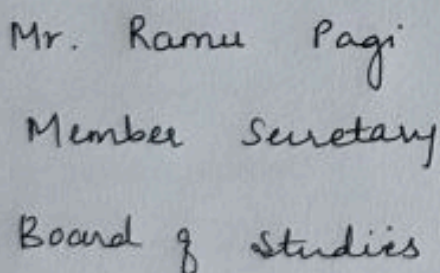 Mr. Ramu Pagi
Member Secretary
Board of Studies